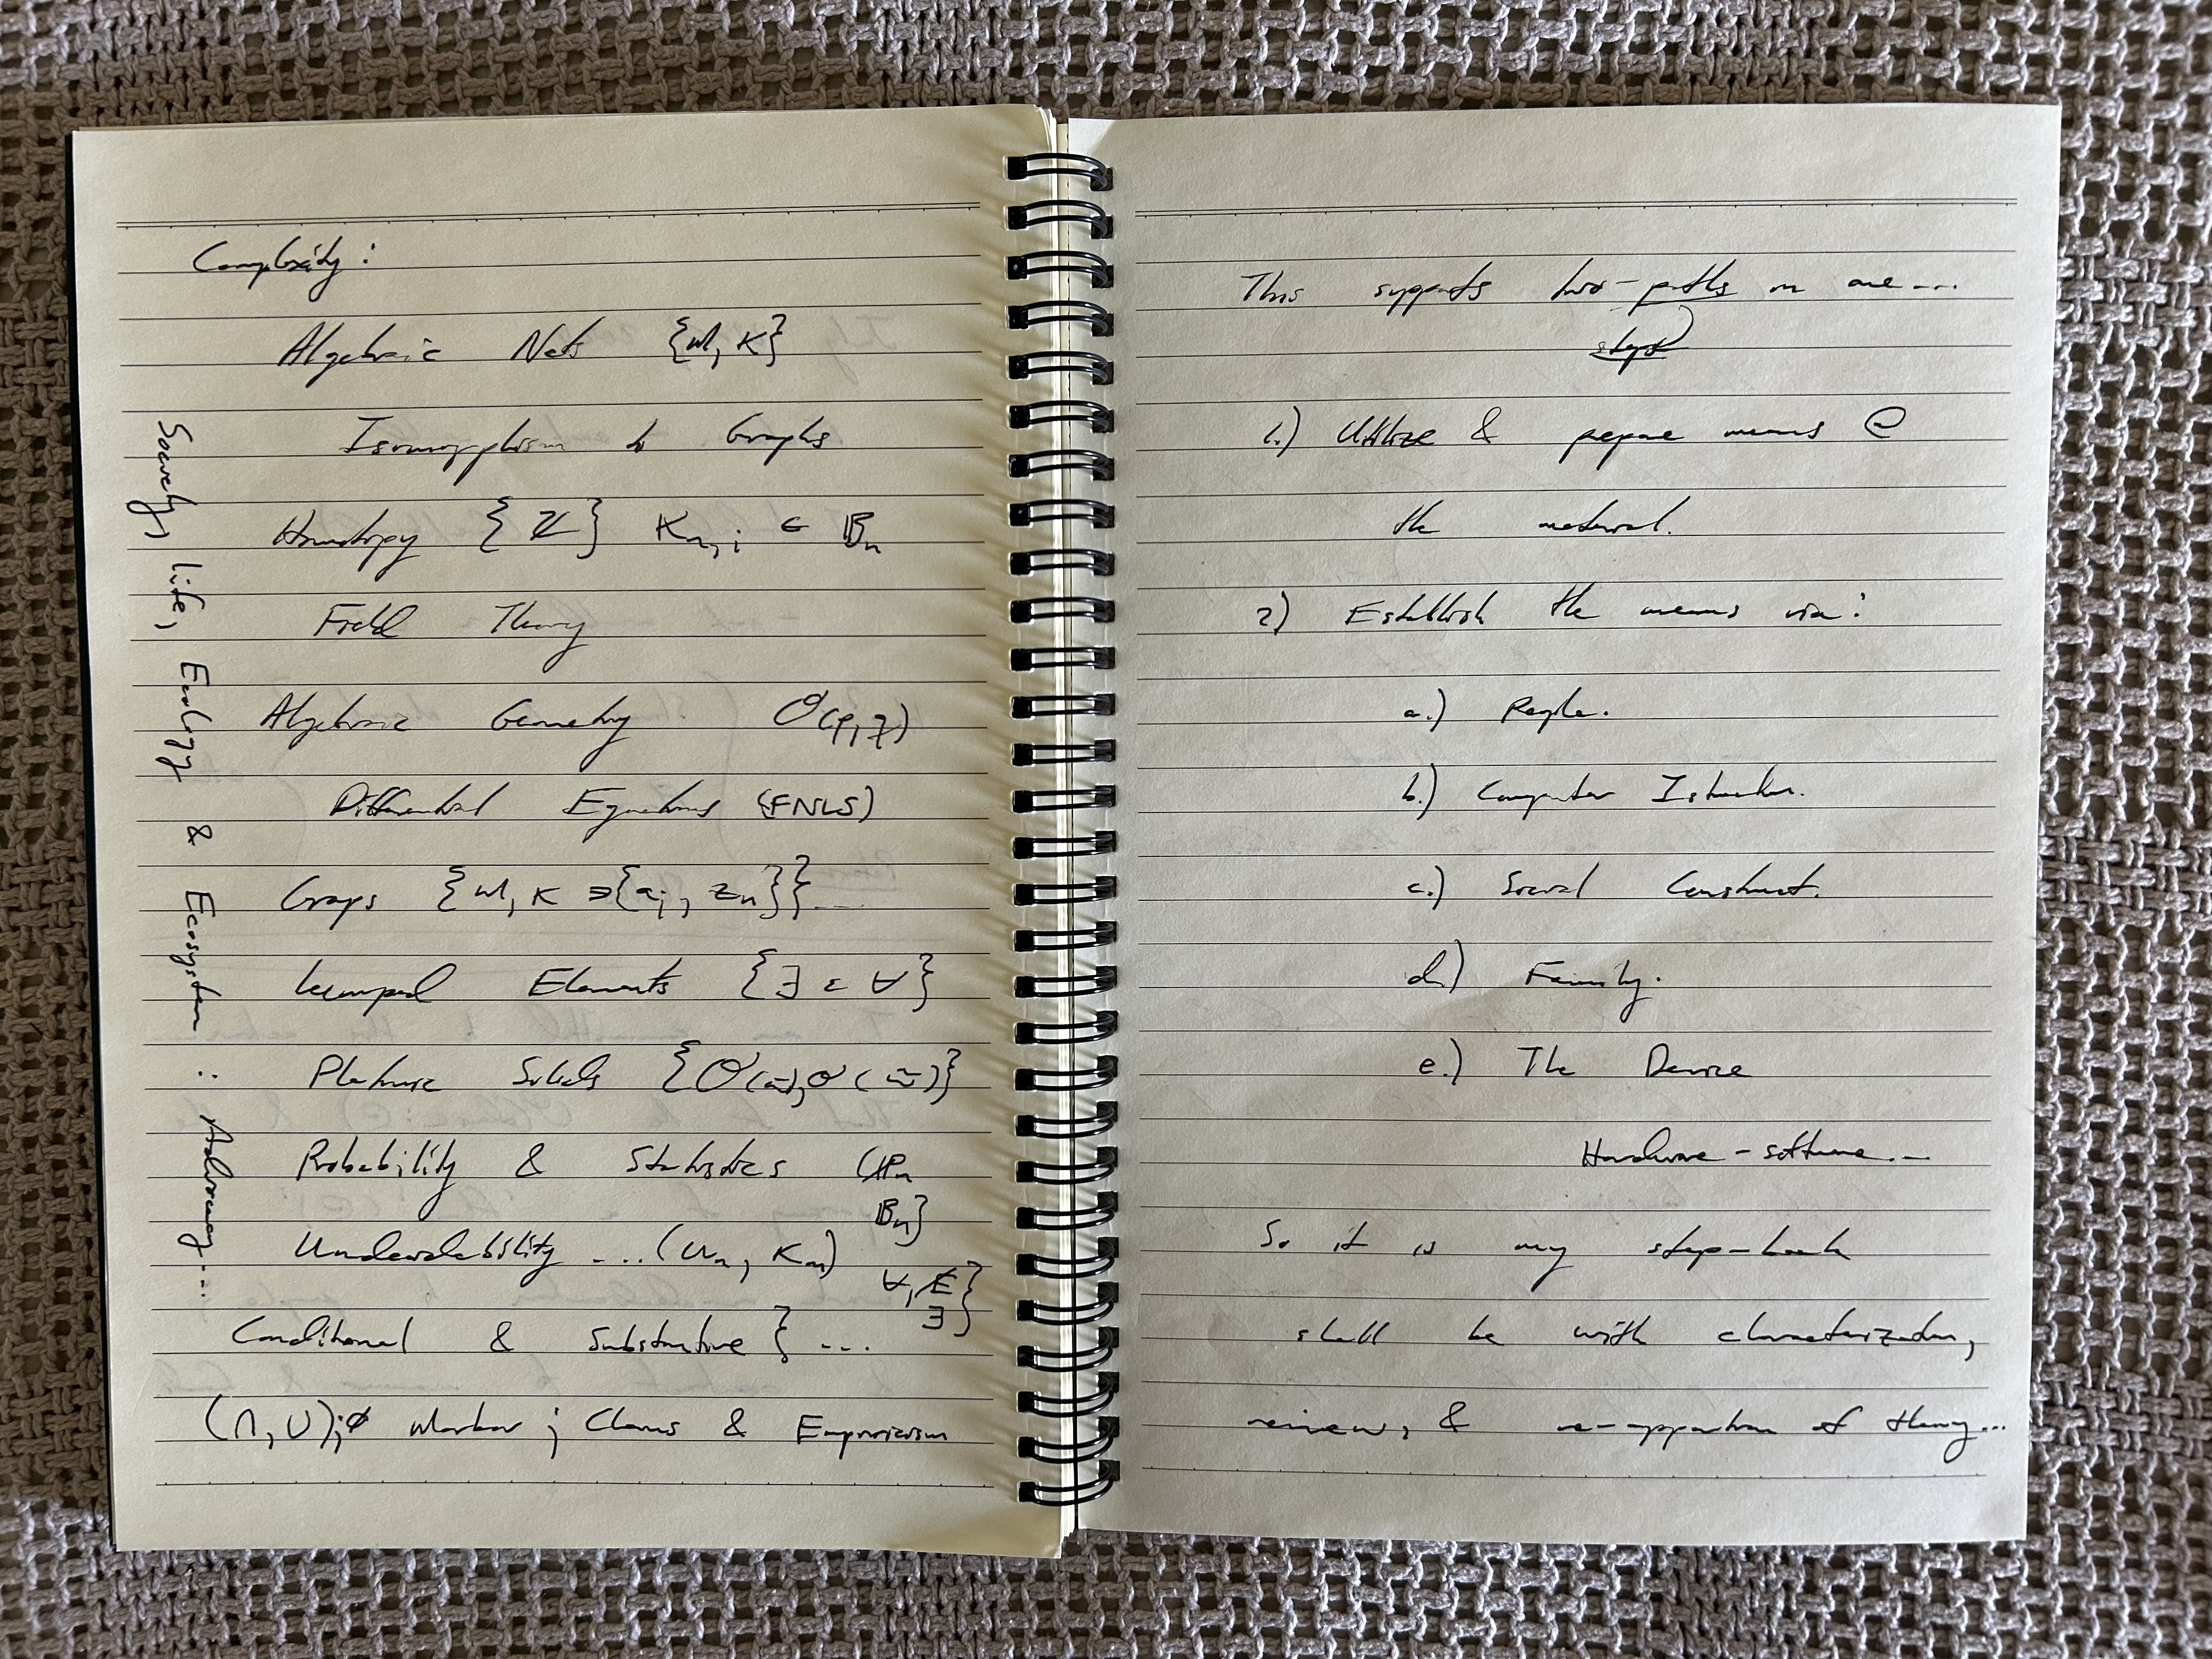 Complexity:
Algebraic Nets {ω, κ}
Isomorphism to Graphs
Homotopy { } Kn,i ∈ 𝔹n
Field Theory
Algebraic Geometry O(p, q)
Differential Equations (FNLS)
Groups {ω, κ ∋{ai, zn}}...
Lumped Elements {∃ ε ∀}
Platonic Solids
Probability & Statistics (ℙn
𝔹n}
Undecidability ...(Un, Kn)
∀, ∃}
Conditional & Substantive } ...
(∩, ∪);∅ Markov ; Claims & Empiricism
Society, life, Ecology & Ecosystem ∴ Advocacy...
This supports two-paths in one...
steps
1.) Utilize & prepare means @
the material.
2) Establish the means via:
a.) People.
b.) Computer
c.) Social Construct.
d.) Family.
e.) The Device
Hardware - software...
So it is my step-back
shall be with characterization,
review, & of theory...